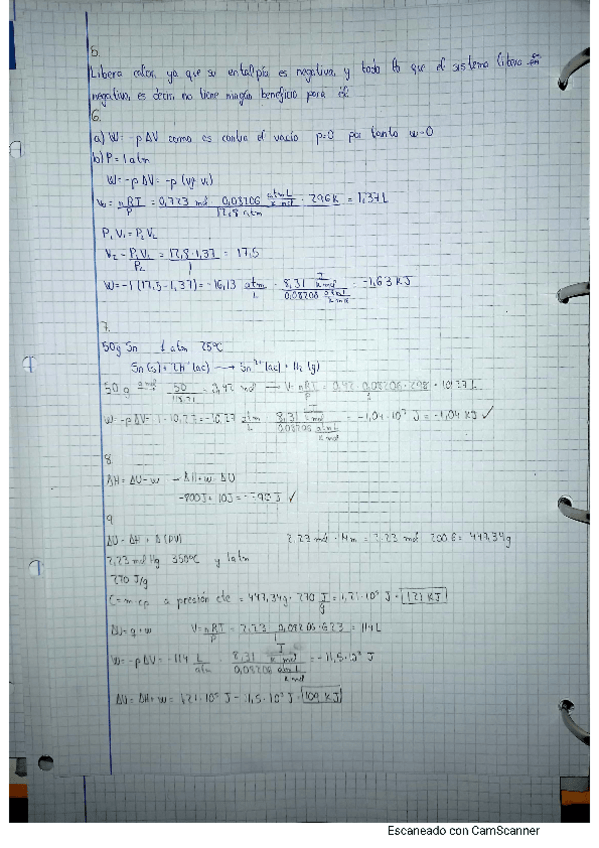 5.
Libera calor, ya que su entalpía es negativa, y todo lo que el sistema libera es
negativo, es decir, no tiene ningún beneficio para él
6.
a) W = -p ΔV como es contra el vacío p=0 por tanto w=0
b) P = 1 atm
W = -p ΔV = -p (V₂-V₁)
V₁ = nRT/P = 0,723 mol · 0,08206 atm L/K mol · 296 K / 12,8 atm = 1,37 L
P₁ V₁ = P₂ V₂
V₂ = P₁ V₁/P₂ = 12,8 · 1,37/1 = 17,5
W = -1 (17,5 - 1,37) = -16,13 atm L · 8,31 J/K mol / 0,08206 atm L/K mol = -1,63 KJ
7.
50g Sn 1 atm 25ºC
Sn (s) + 2H⁺ (ac) → Sn²⁺ (ac) + H₂ (g)
50 g 50/118,71 = 0,42 mol → V = nRT/P = 0,42 · 0,08206 · 298 = 10,27 L
W = -p ΔV = -1 · 10,27 = -10,27 atm L · 8,31 J/K mol / 0,08206 atm L/K mol = -1,04 · 10³ J = -1,04 KJ ✓
8.
ΔH = ΔU - w ΔH + w = ΔU
-800J + 10J = -790 J ✓
9.
ΔU = ΔH + Δ(PV) 2,23 mol · Mm = 2,23 mol · 200,6 = 447,34g
2,23 mol Hg 350ºC y 1 atm
270 J/g
a presión cte = 447,34g · 270 J/g = 1,21 · 10⁵ J = 121 KJ
ΔU = q + w V = nRT/P = 2,23 · 0,08206 · 623 = 114 L
W = -p ΔV = -114 L atm · 8,31 J/K mol / 0,08206 atm L/K mol = -11,5 · 10³ J
ΔU = ΔH + w = 121 · 10³ J - 11,5 · 10³ J = 109 KJ
Escaneado con CamScanner